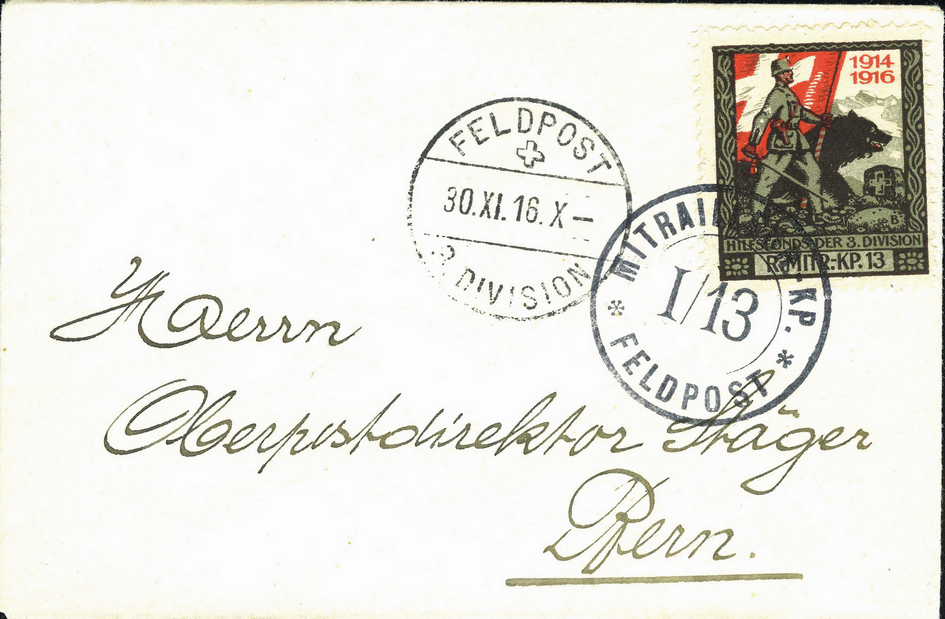 FELDPOST
30.XI.16.X–
3. DIVISION
MITRAILL.-KP.
I/13
* FELDPOST *
1914
1916
HILFSFONDS DER 3. DIVISION
R.MITR.-KP.13
B
Herrn
Oberpostdirektor Stäger
Bern.